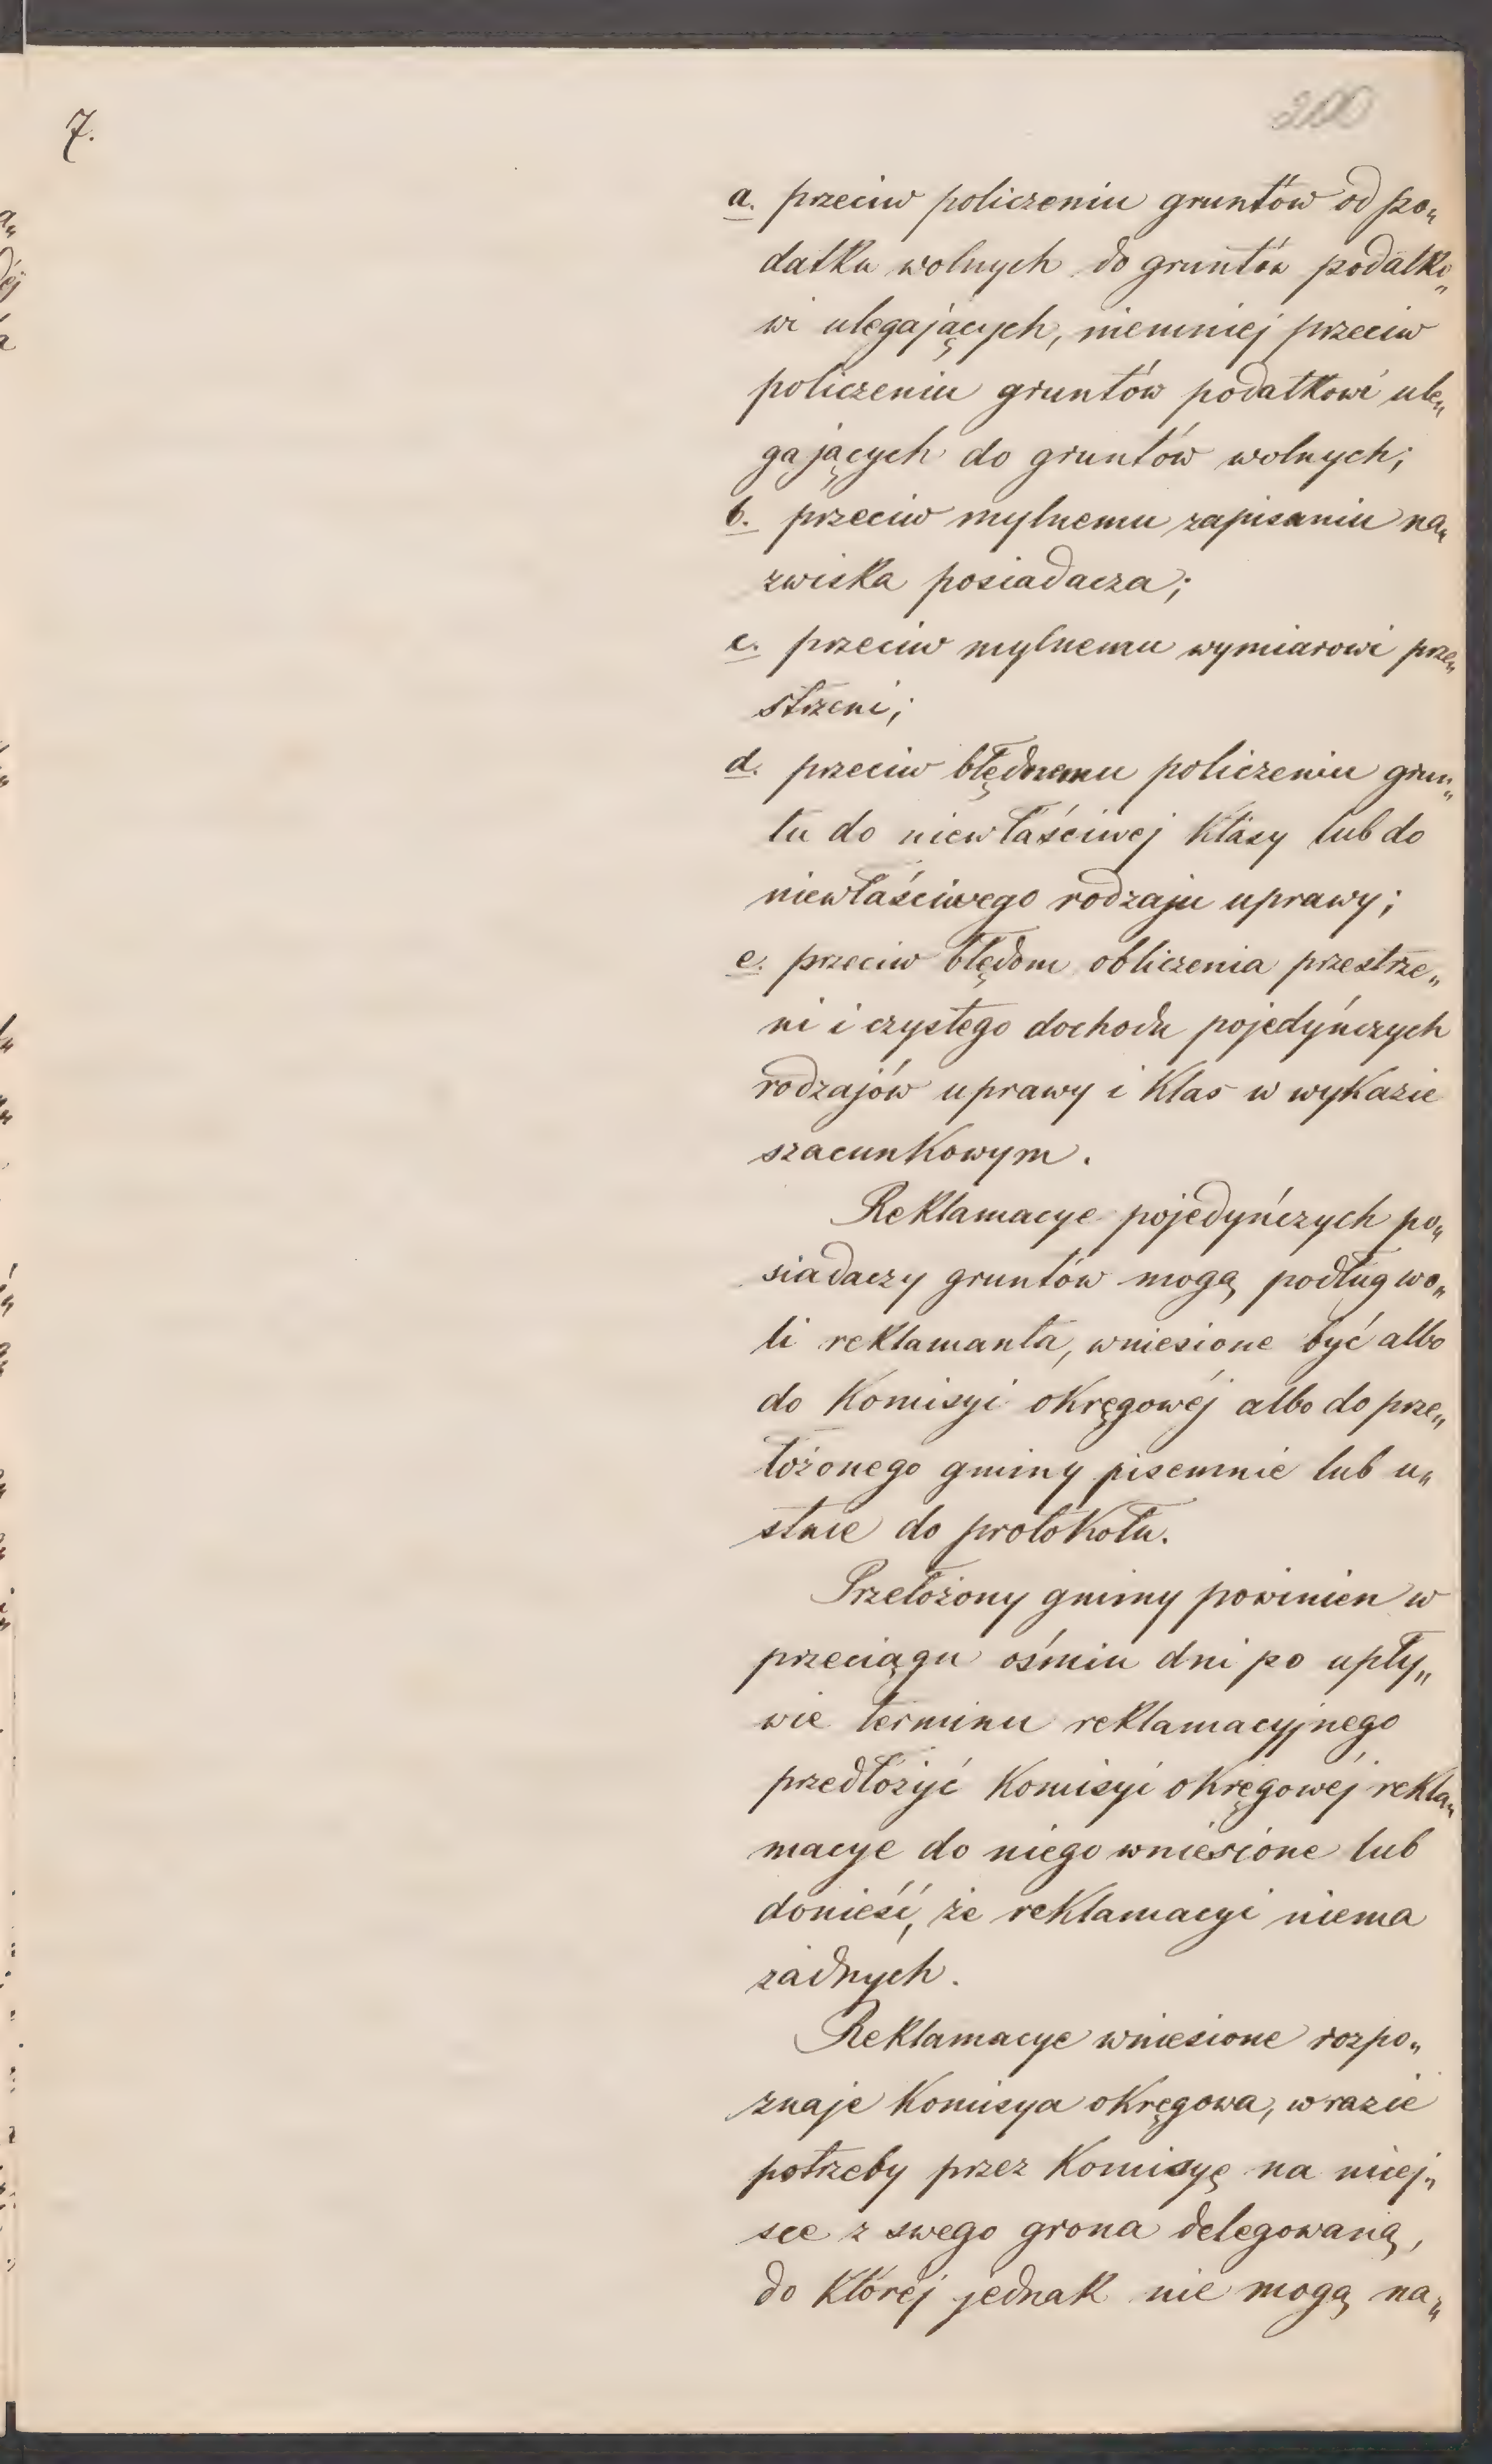 7.
200
a. przeciw policzeniu gruntów od po„
datku wolnych do gruntów podatko„
wi ulegających, niemniej przeciw
policzeniu gruntów podatkowi ule„
gających do gruntów wolnych;
b. przeciw mylnemu zapisaniu na„
zwiska posiadacza;
c. przeciw mylnemu wymiarowi prze„
strzeni;
d. przeciw błędnemu policzeniu grun„
tu do niewłaściwej klasy lub do
niewłaściwego rodzaju uprawy;
e. przeciw błędom obliczenia przestrze„
ni i czystego dochodu pojedyńczych
rodzajów uprawy i klas w wykazie
szacunkowym.
Reklamacye pojedyńczych po„
siadaczy gruntów mogą podług wo„
li reklamanta, wniesione być albo
do Komisyi okręgowéj albo do prze„
łożonego gminy pisemnie lub u„
stnie do protokołu.
Przełożony gminy powinien w
przeciągu ośmiu dni po upły„
wie terminu reklamacyjnego
przedłożyć Komisyi okręgowéj rekla„
macye do niego wniesione lub
donieść, że reklamacyi niema
żadnych.
Reklamacye wniesione rozpo„
znaje Komisya okręgowa, w razie
potrzeby przez Komisyę na miej„
sce z swego grona delegowaną,
do któréj jednak nie mogą na„